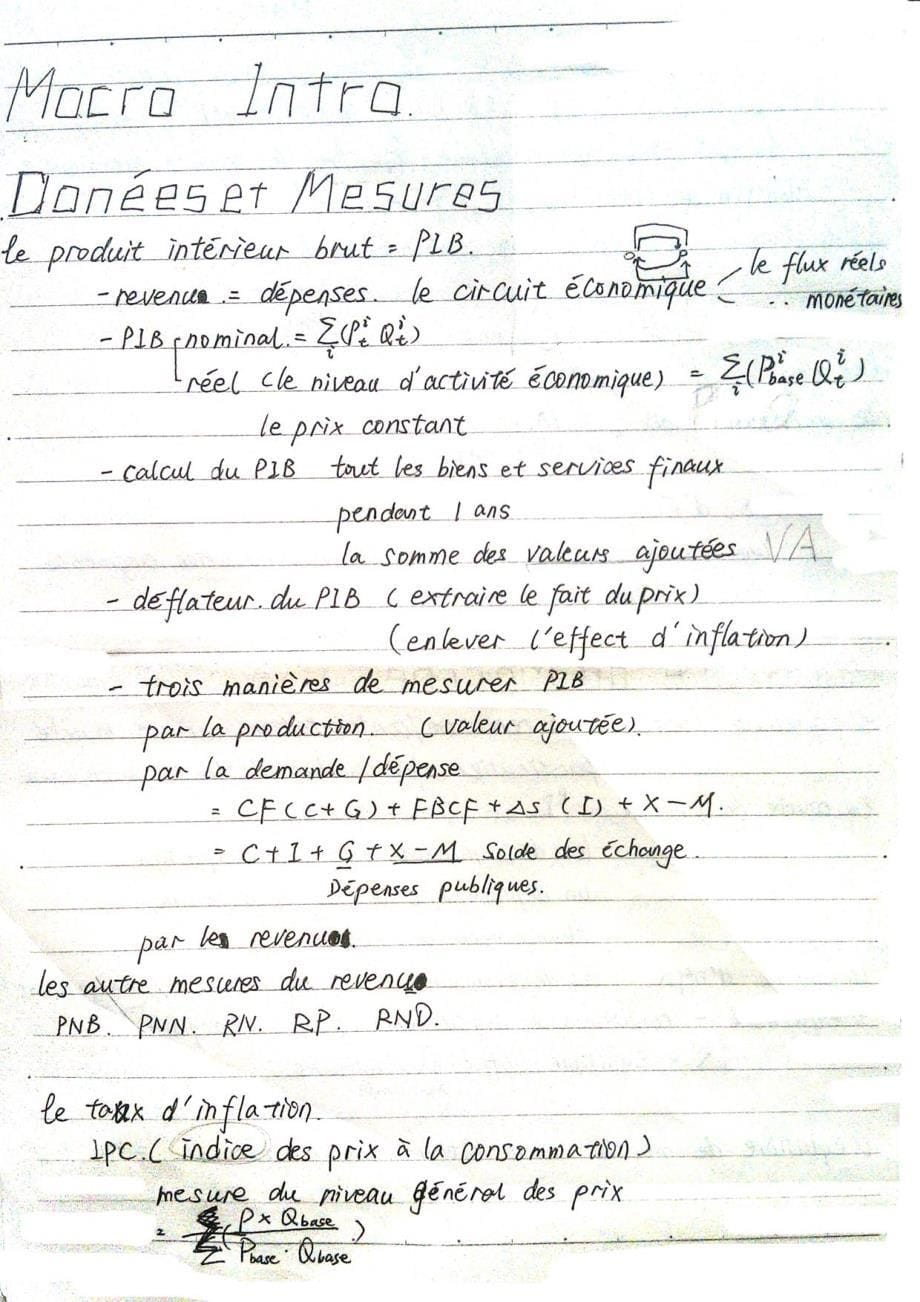 Macro Intro.
Donées et Mesures
le produit intérieur brut = PIB.
- revenu = dépenses. le circuit économique le flux réels
.. monétaires
- PIB nominal. = Σi(P^i_t Q^i_t)
réel (le niveau d'activité économique) = Σi(P^i_base Q^i_t)
le prix constant
- calcul du PIB tout les biens et services finaux
pendant 1 ans
la somme des valeurs ajoutées VA
- déflateur. du PIB (extraire le fait du prix)
(enlever l'effect d'inflation)
- trois manières de mesurer PIB
par la production. (valeur ajoutée).
par la demande / dépense
= CF (C+G) + FBCF + ΔS (I) + X - M.
= C + I + G + X - M Solde des échange.
Dépenses publiques.
par le revenu.
les autre mesures du revenu
PNB. PNN. RN. RP. RND.
le taux d'inflation.
IPC. (indice des prix à la consommation)
mesure du niveau général des prix
= Σ(P × Qbase / Pbase · Qbase)